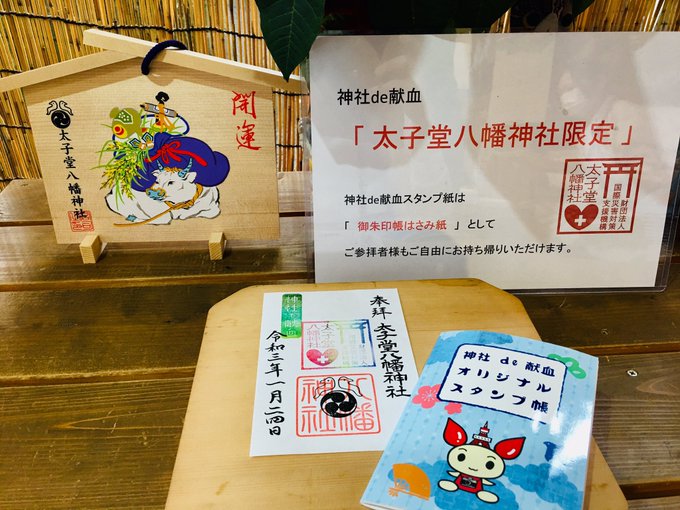 開運
太子堂八幡神社
神社de献血
「 太子堂八幡神社限定 」
神社de献血スタンプ紙は
「 御朱印帳はさみ紙 」 として
ご参拝者様もご自由にお持ち帰りいただけます。
太子堂
八幡神社
財団法人
国際災害対策
支援機構
奉拝
太子堂八幡神社
神社で献血
太子堂
八幡神社
八幡
神社
令和三年一月二四日
神社 de 献血
オリジナル
スタンプ帳